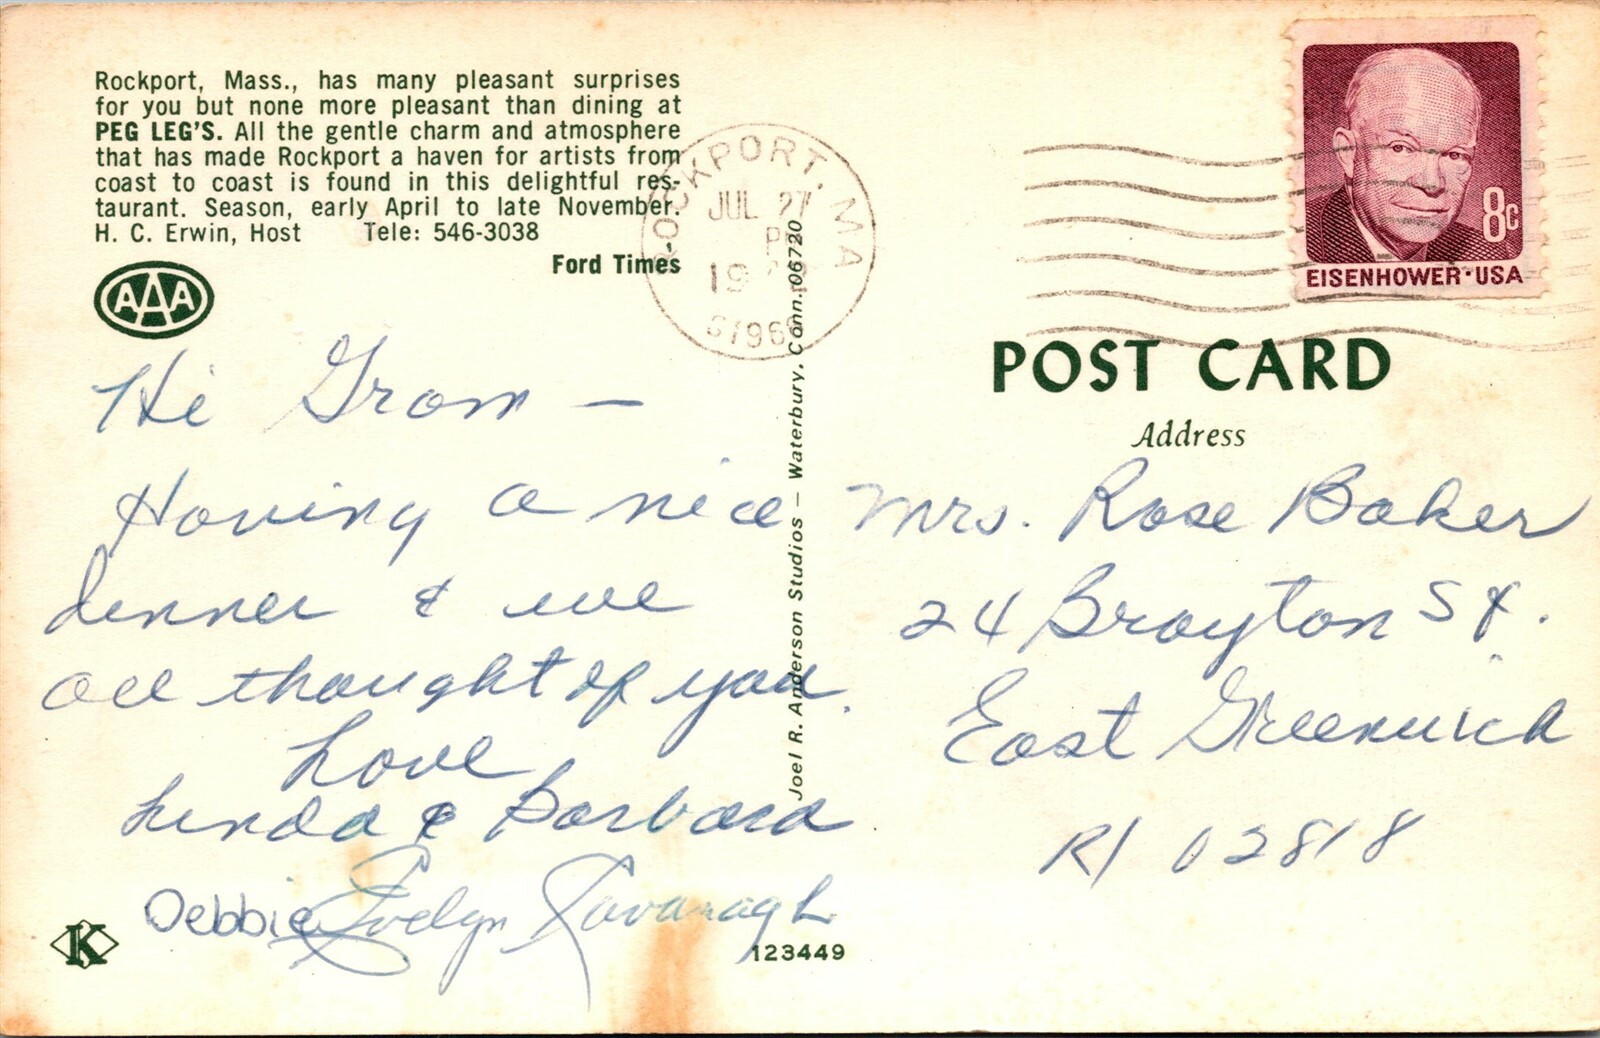 Rockport, Mass., has many pleasant surprises
for you but none more pleasant than dining at
PEG LEG'S. All the gentle charm and atmosphere
that has made Rockport a haven for artists from
coast to coast is found in this delightful res-
taurant. Season, early April to late November.
H. C. Erwin, Host Tele: 546-3038
Ford Times
AAA
Hi Gram —
Having a nice
dinner & we
all thought of you.
Love
Linda & Barbara
Debbie Evelyn Kavanagh
K
123449
Joel R. Anderson Studios — Waterbury, Conn. 06720
ROCKPORT, MA
JUL 27
PM
19
01966
8c
EISENHOWER·USA
POST CARD
Address
Mrs. Rose Baker
24 Brayton St.
East Greenwich
RI 02818